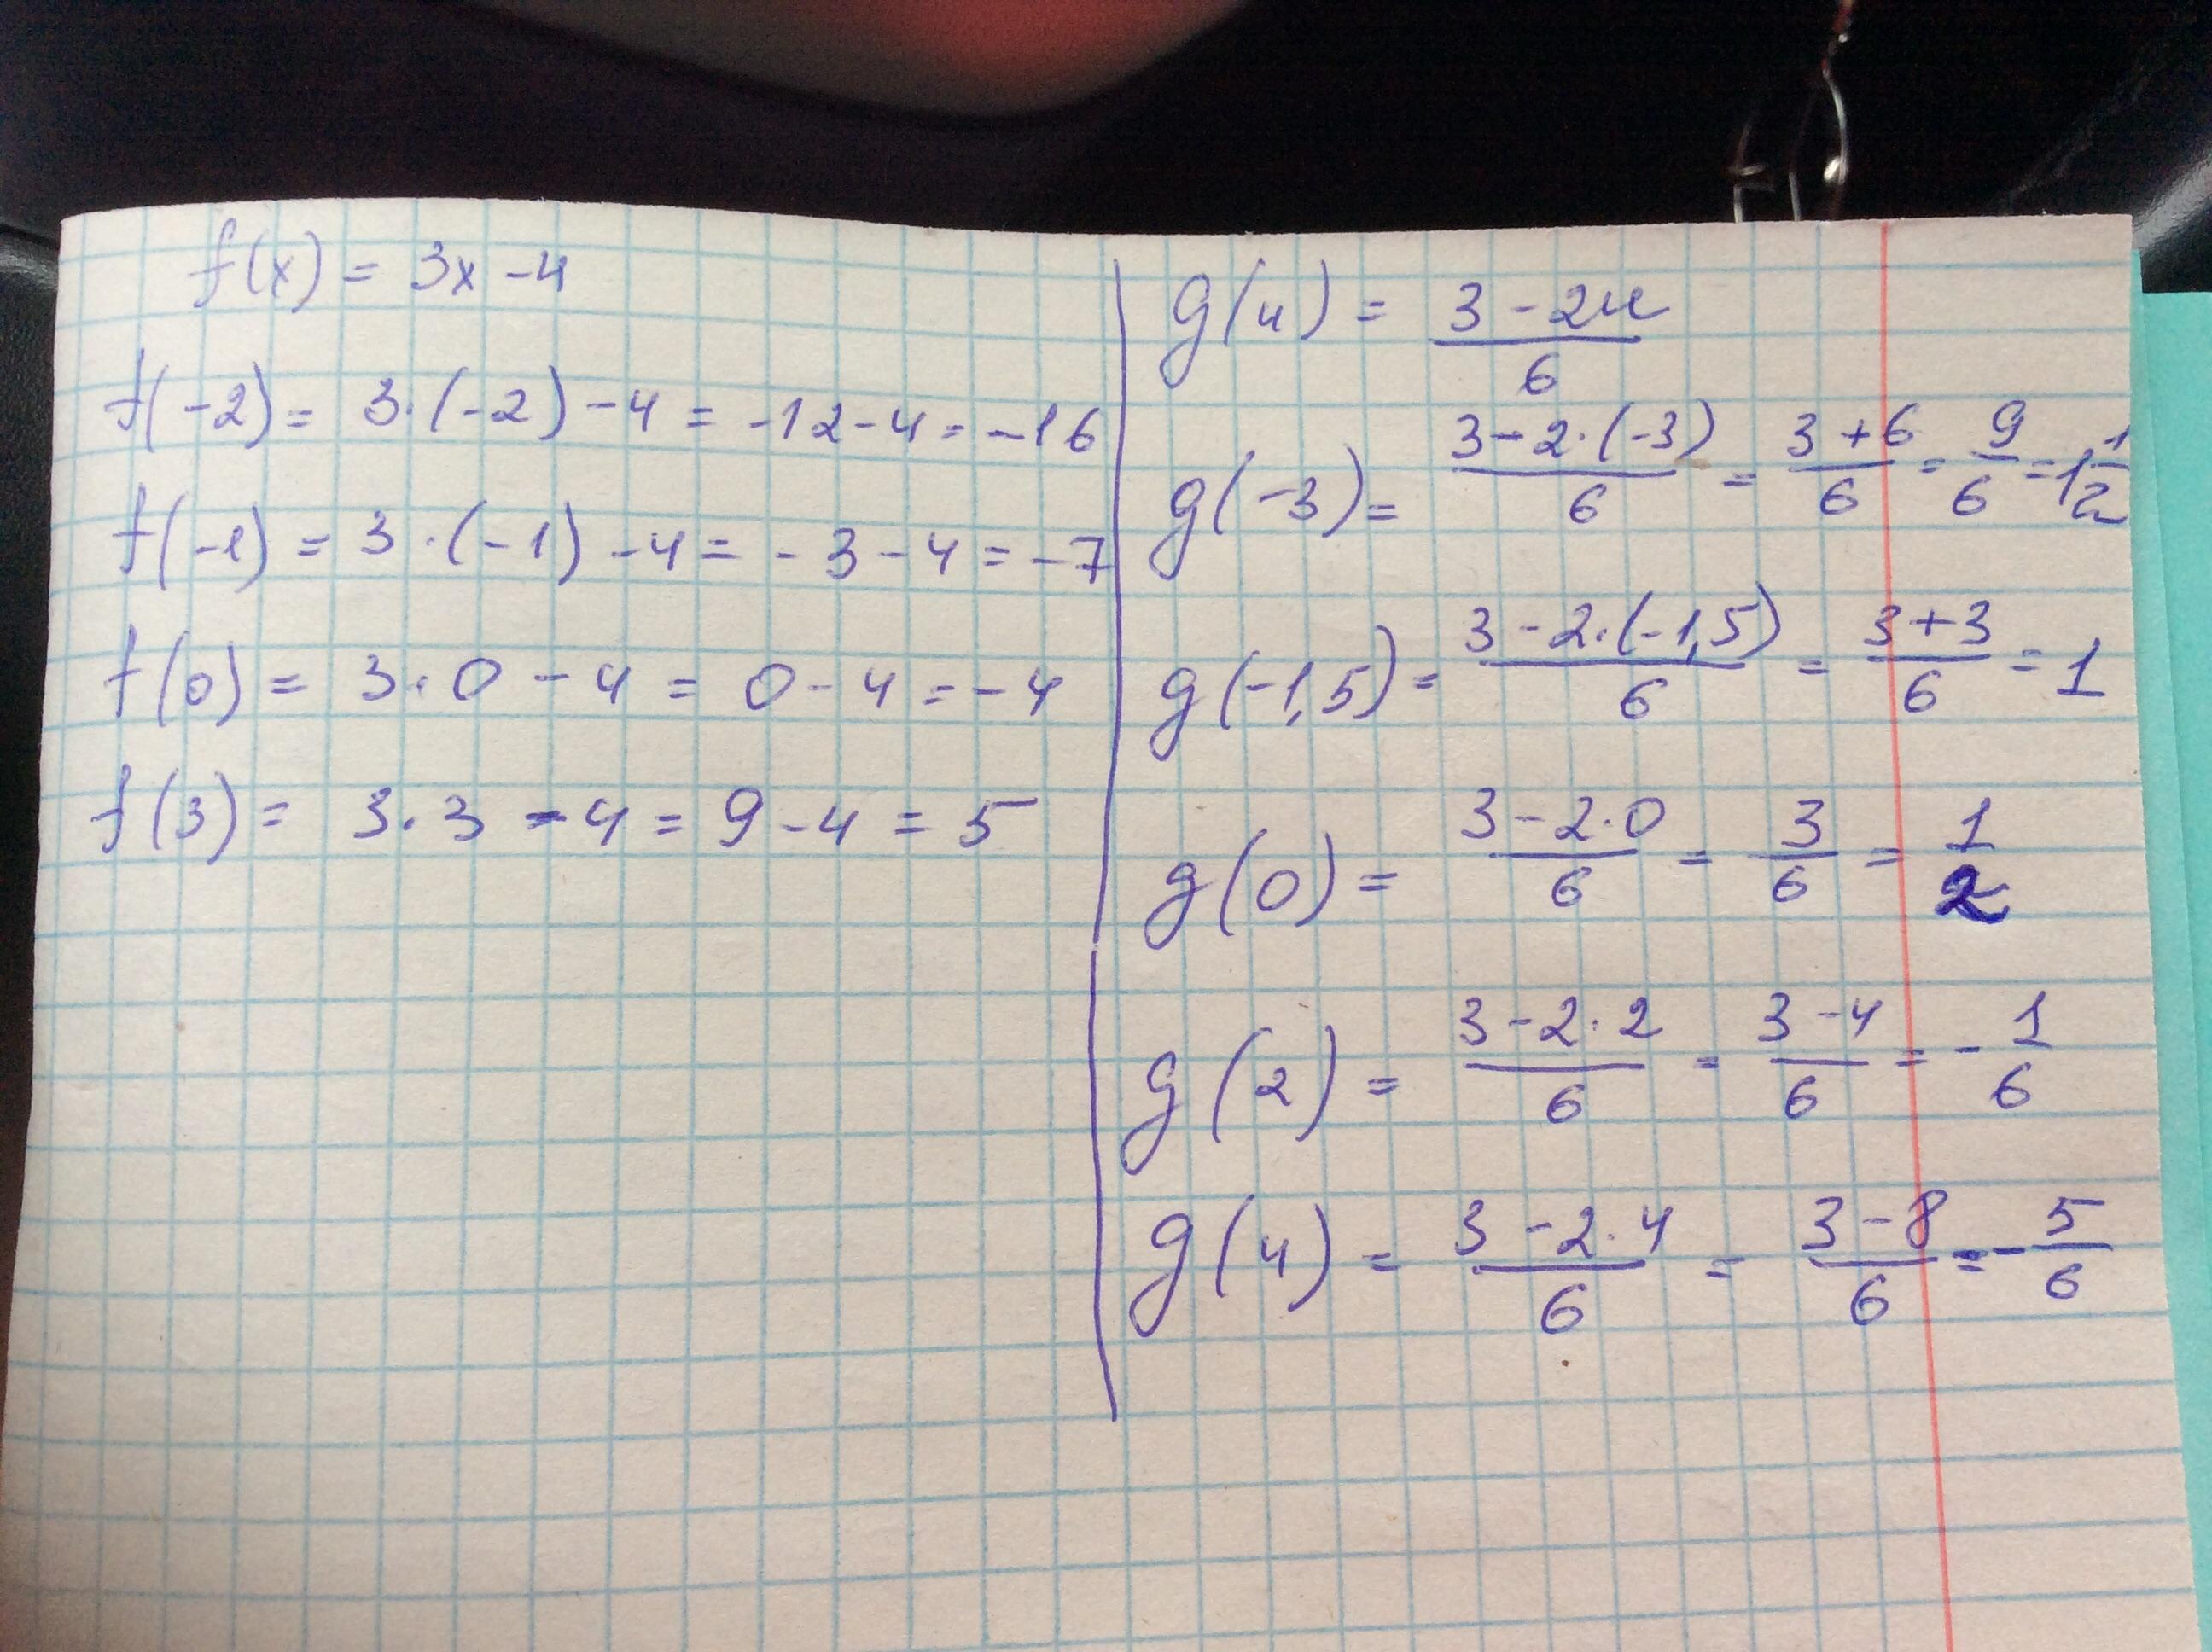 f(x) = 3x - 4
f(-2) = 3·(-2) - 4 = -12 - 4 = -16
f(-1) = 3·(-1) - 4 = -3 - 4 = -7
f(0) = 3·0 - 4 = 0 - 4 = -4
f(3) = 3·3 - 4 = 9 - 4 = 5
g(u) = \frac{3 - 2u}{6}
g(-3) = \frac{3 - 2·(-3)}{6} = \frac{3 + 6}{6} = \frac{9}{6} = 1\frac{1}{2}
g(-1,5) = \frac{3 - 2·(-1,5)}{6} = \frac{3 + 3}{6} = 1
g(0) = \frac{3 - 2·0}{6} = \frac{3}{6} = \frac{1}{2}
g(2) = \frac{3 - 2·2}{6} = \frac{3 - 4}{6} = -\frac{1}{6}
g(4) = \frac{3 - 2·4}{6} = \frac{3 - 8}{6} = -\frac{5}{6}